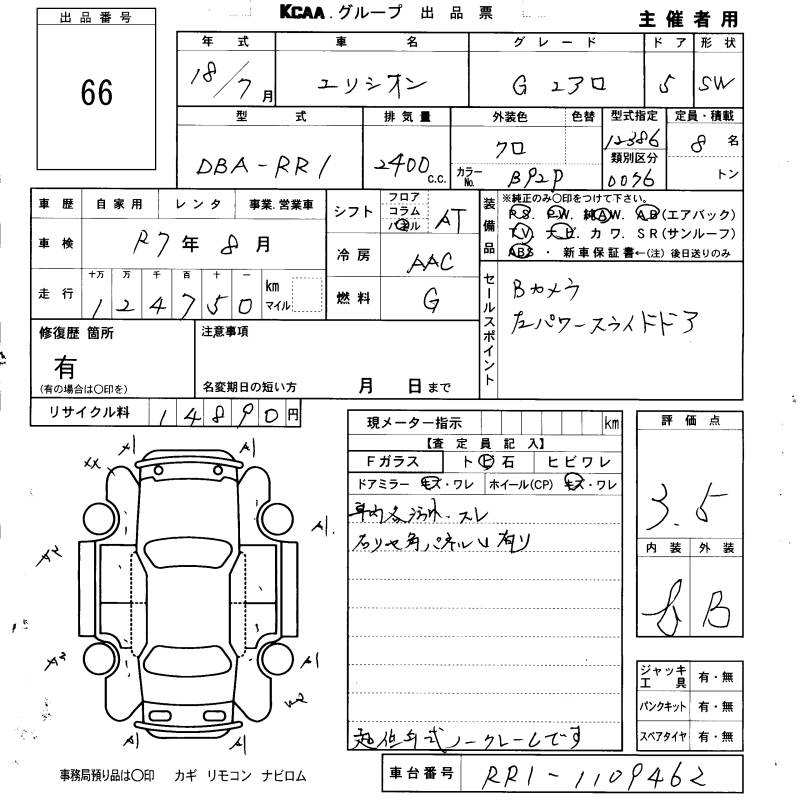 KCAA.グループ 出品票
主催者用
出品番号
66
年式 車名 グレード ドア 形状
18/7月 エリシオン G エアロ 5 SW
型式 排気量 外装色 色替 型式指定 定員・積載
DBA-RR1 2400c.c. クロ 12386 8名
カラーNo. B92P 類別区分 0056 トン
車歴 自家用 レンタ 事業.営業車
車検 R7年8月
走行 十万 万 千 百 十 一 km マイル
124750
シフト フロア コラム パネル AT
冷房 AAC
燃料 G
装備品 ※純正のみ○印をつけて下さい。
P.S. P.W. 純A.W. A.B(エアバック)
T.V. ナビ. カワ. SR(サンルーフ)
ABS ・ 新車保証書←(注) 後日送りのみ
セールスポイント
Bカメラ
左パワースライドドア
修復歴 箇所
有
(有の場合は○印を)
注意事項
名変期日の短い方 月 日まで
リサイクル料 14890円
現メーター指示 km
【査定員記入】
Fガラス ト ビ 石 ヒビワレ
ドアミラー キズ・ワレ ホイール(CP) キズ・ワレ
車内各汚れ.スレ
右リヤ角パネルU有り
低年式ノークレームです
評価点
3.5
内装 外装
B
ジャッキ工具 有・無
パンクキット 有・無
スペアタイヤ 有・無
A1 A1
XX
A2 A1
A2 A1
A1 A1
事務局預り品は○印 カギ リモコン ナビロム
車台番号 RR1-1109462